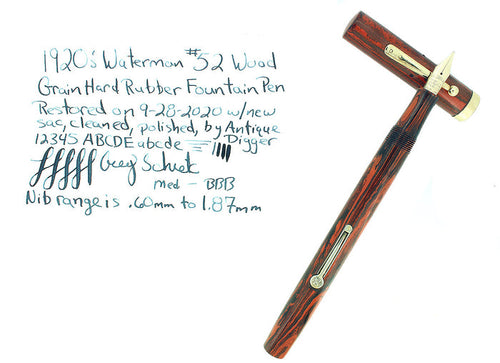 1920's Waterman #52 Wood
Grain Hard Rubber Fountain Pen
Restored on 9-28-2020 w/new
sac, cleaned, polished, by Antique
12345 ABCDE abcde Digger
Greg Schiek
med - BBB
Nib range is .60mm to 1.87mm